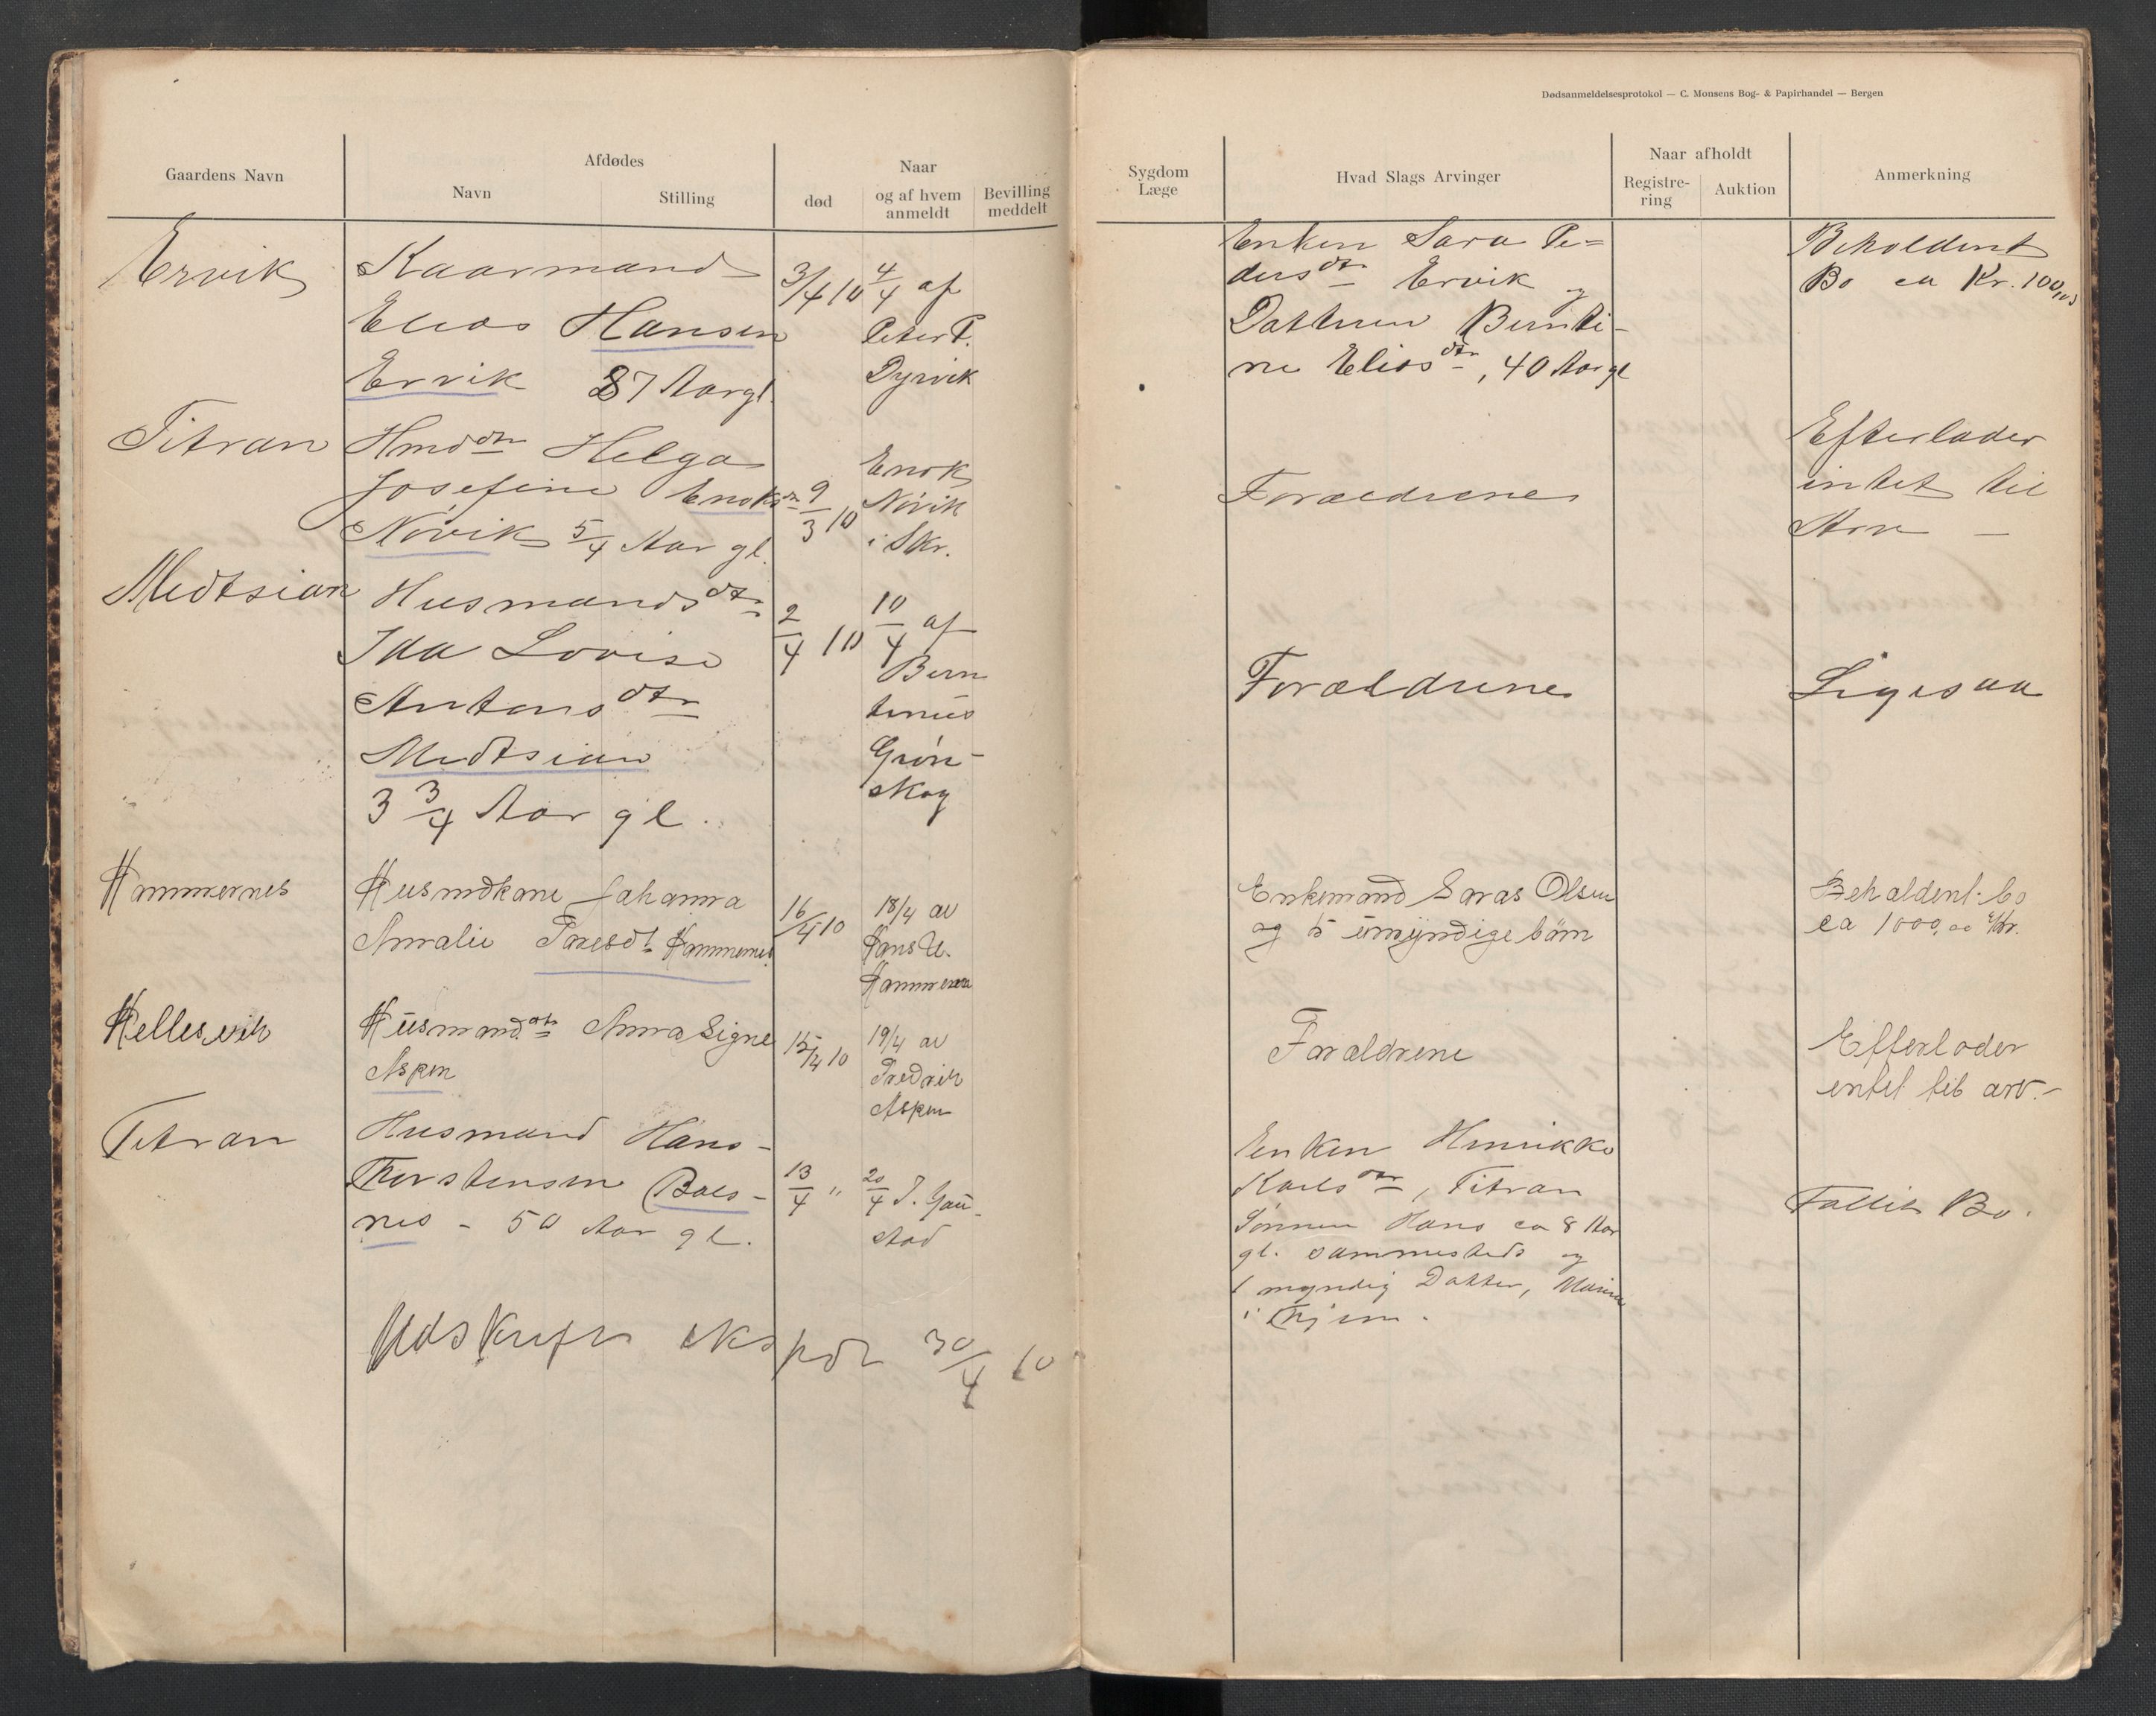 Dødsanmeldelsesprotokol — C. Monsens Bog- & Papirhandel — Bergen
Gaardens Navn
Afdødes
Navn
Stilling
Naar
død
og af hvem anmeldt
Bevilling meddelt
Sygdom
Læge
Hvad Slags Arvinger
Naar afholdt
Registrering
Auktion
Anmerkning
Ervik
Kaarmand
Elias Hansen
Ervik 87 Aar gl.
3/4 10
4/4 af
Peter P.
Dyrvik
Enken Sara Pe=
dersdtr Ervik og
Datteren Bernti-
ne Eliasdtr, 40 Aar gl
Beholdent
Bo ca Kr. 100,00
Titran
Hmdsdtr Helga
Josefine Enoksdtr
Nøvik 5/4 Aar gl.
9/3 10
Enok
Nøvik
i Skr.
Forældrene
Efterlader
intet til
Arv —
Medtsian
Husmandsdtr
Ida Lovise
Antonsdtr
Medtsian
3 3/4 Aar gl.
2/4 10
10/4 af
Bern
tinus
Grøn-
skog
Forældrene
Ligesaa
Hammernes
Husmdkone Johanna
Amalie Paresdt Hammernes
16/4 10
18/4 av
Hans U.
Enkemand Saras Olsen
og 5 umyndige børn
Beholdent bo
ca 1000,00 Kr.
Hellesvik
Husmandsdtr Anna Signe
Aspen
15/4 10
19/4 av
Fredrik
Aspen
Forældrene
Efterlader
intet til arv.-
Titran
Husmand Hans-
Thorstensen Bals-
nes - 50 Aar gl.
13/4 "
20/4 J. Gau-
stad
Enken Henrikke
Karlsdtr, Titran
Sønnen Hans ca 8 Aar
gl. sammesteds og
1 myndig Datter,
i Thjem.
Fallit Bo.
Udskrift ekspdr 30/4 10